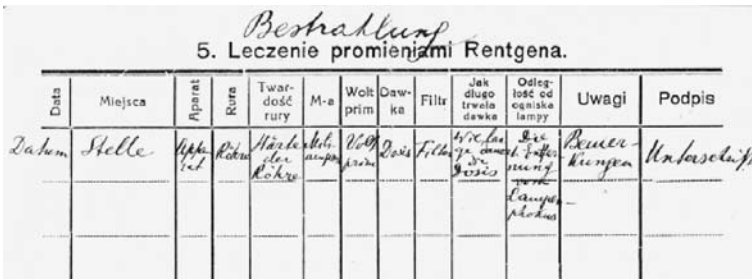 Bestrahlung
5. Leczenie promieniami Rentgena.
Data Miejsca Aparat Rura Twar-dość rury M-a Wolt prim Daw-ka Filtr Jak długo trwała dawka Odleg-łość od ogniska lampy Uwagi Podpis
Datum Stelle Appa-rat Röhre Härte der Röhre Volt prim Dosis Filter Wie lan-ge die Dosis Die Entfer-nung vom Lampen-phokus Bemer-kungen Unterschrift